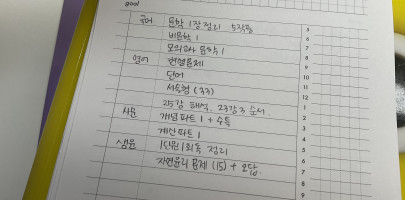 goal
국어 문학 1장 정리 5작품
비문학 1
모의고사 문학 1
영어 변형문제
단어
서술형 (33)
25강 해석. 23강 3 순서.
사문 개념 파트 1 + 수특
계산 파트 1
생윤 1단원 1회독 정리
자연윤리 문제 (15) + 오답.
5
6
7
8
9
10
11
12
1
2
3
4
5
6
7
8
9